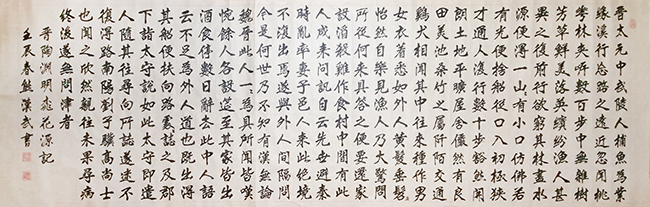 晉太元中武陵人捕魚為業
緣溪行忘路之遠近忽聞桃
花林夾岸數百步中無雜樹
芳草鮮美落英繽紛漁人甚
異之復前行欲窮其林盡水
源便得一山有小口仿佛若
有光便捨船從口入初極狹
才通人復行數十步豁然開
朗土地平曠屋舍儼然有良
田美池桑竹之屬阡陌交通
雞犬相聞其中往來種作男
女衣著悉如外人黃髮垂髫
怡然自樂見漁人乃大驚問
所從何來具答之便要還家
設酒殺雞作食村中聞有此
人咸來問訊自云先世避秦
時亂率妻子邑人來此絕境
不復出焉遂與外人間隔問
今是何世乃不知有漢無論
魏晉此人一一為具所聞皆嘆
惋餘人各設延至其家皆出
酒食停數日辭去此中人語
云不足為外人道也既出得
其船便扶向路處處誌之及郡
下詣太守說如此太守即遣
人隨其往尋向所誌遂迷不
復得路南陽劉子驥高尚士
也聞之欣然親往未果尋病
終後遂無問津者
晉陶淵明桃花源記
壬辰春熊漢武書